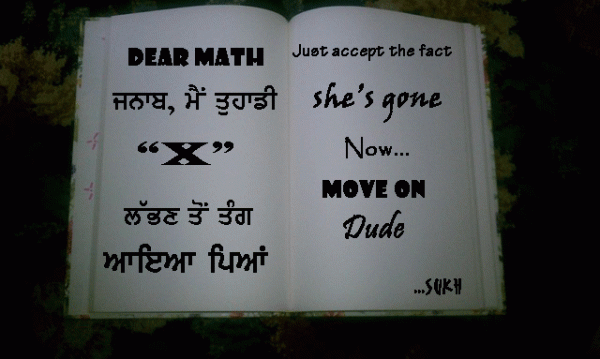 DEAR MATH
ਜਨਾਬ, ਮੈਂ ਤੁਹਾਡੀ
“X”
ਲੱਭਣ ਤੋਂ ਤੰਗ
ਆਇਆ ਪਿਆਂ
Just accept the fact
she's gone
Now...
MOVE ON
Dude
...SUKH